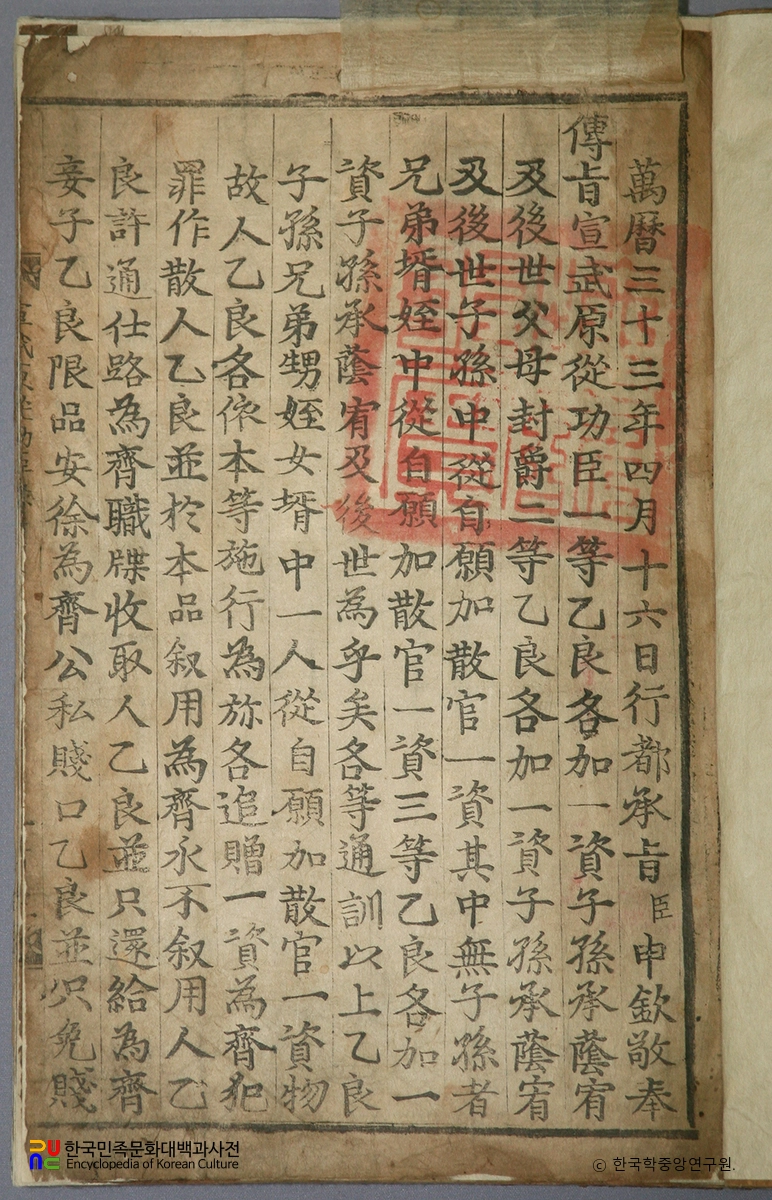 萬曆三十三年四月十六日行都承旨臣申欽敬奉
傳旨宣武原從功臣一等乙良各加一資子孫承蔭宥
及後世父母封爵二等乙良各加一資子孫承蔭宥
及後世子孫中從自願加散官一資其中無子孫者
兄弟壻姪中從自願加散官一資三等乙良各加一
資子孫承蔭宥及後世為乎矣各等通訓以上乙良
子孫兄弟甥姪女壻中一人從自願加散官一資物
故人乙良各依本等施行為旀各追贈一資為齊犯
罪作散人乙良並於本品叙用為齊永不叙用人乙
良許通仕路為齊職牒收取人乙良並只還給為齊
妾子乙良限品安徐為齊公私賤口乙良並只免賤
한국민족문화대백과사전
Encyclopedia of Korean Culture
© 한국학중앙연구원.